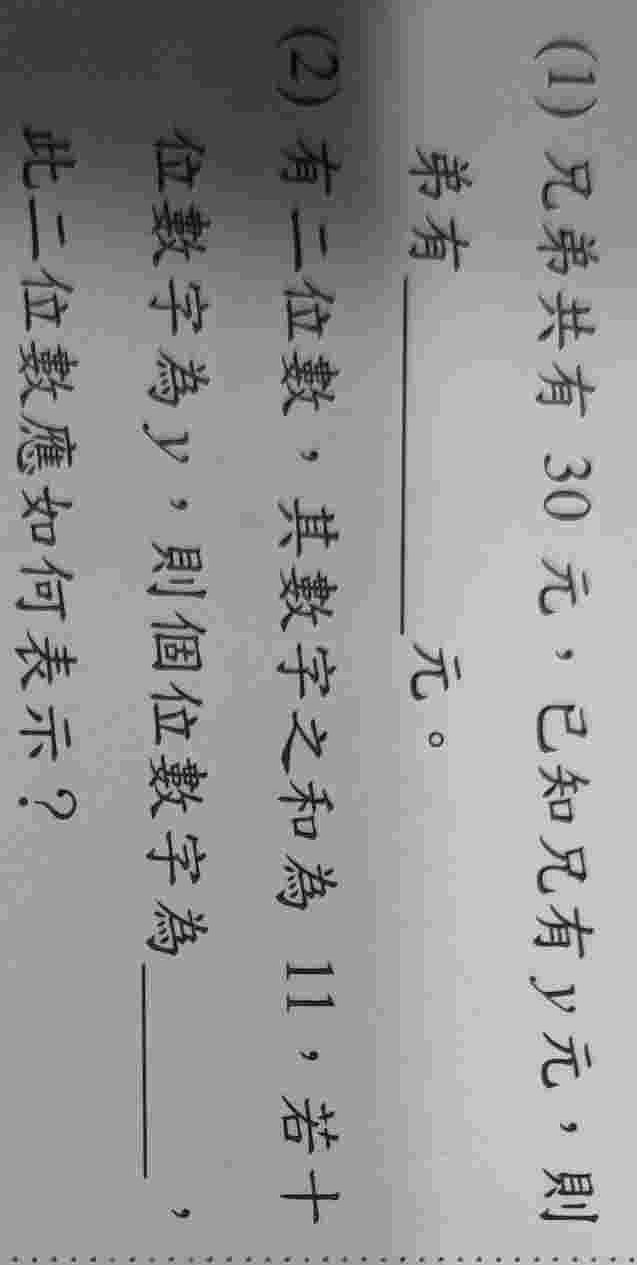 (1) 兄弟共有 30 元，已知兄有 y 元，則
弟有＿＿＿＿＿＿元。
(2) 有二位數，其數字之和為 11，若十
位數字為 y，則個位數字為＿＿＿＿，
此二位數應如何表示？